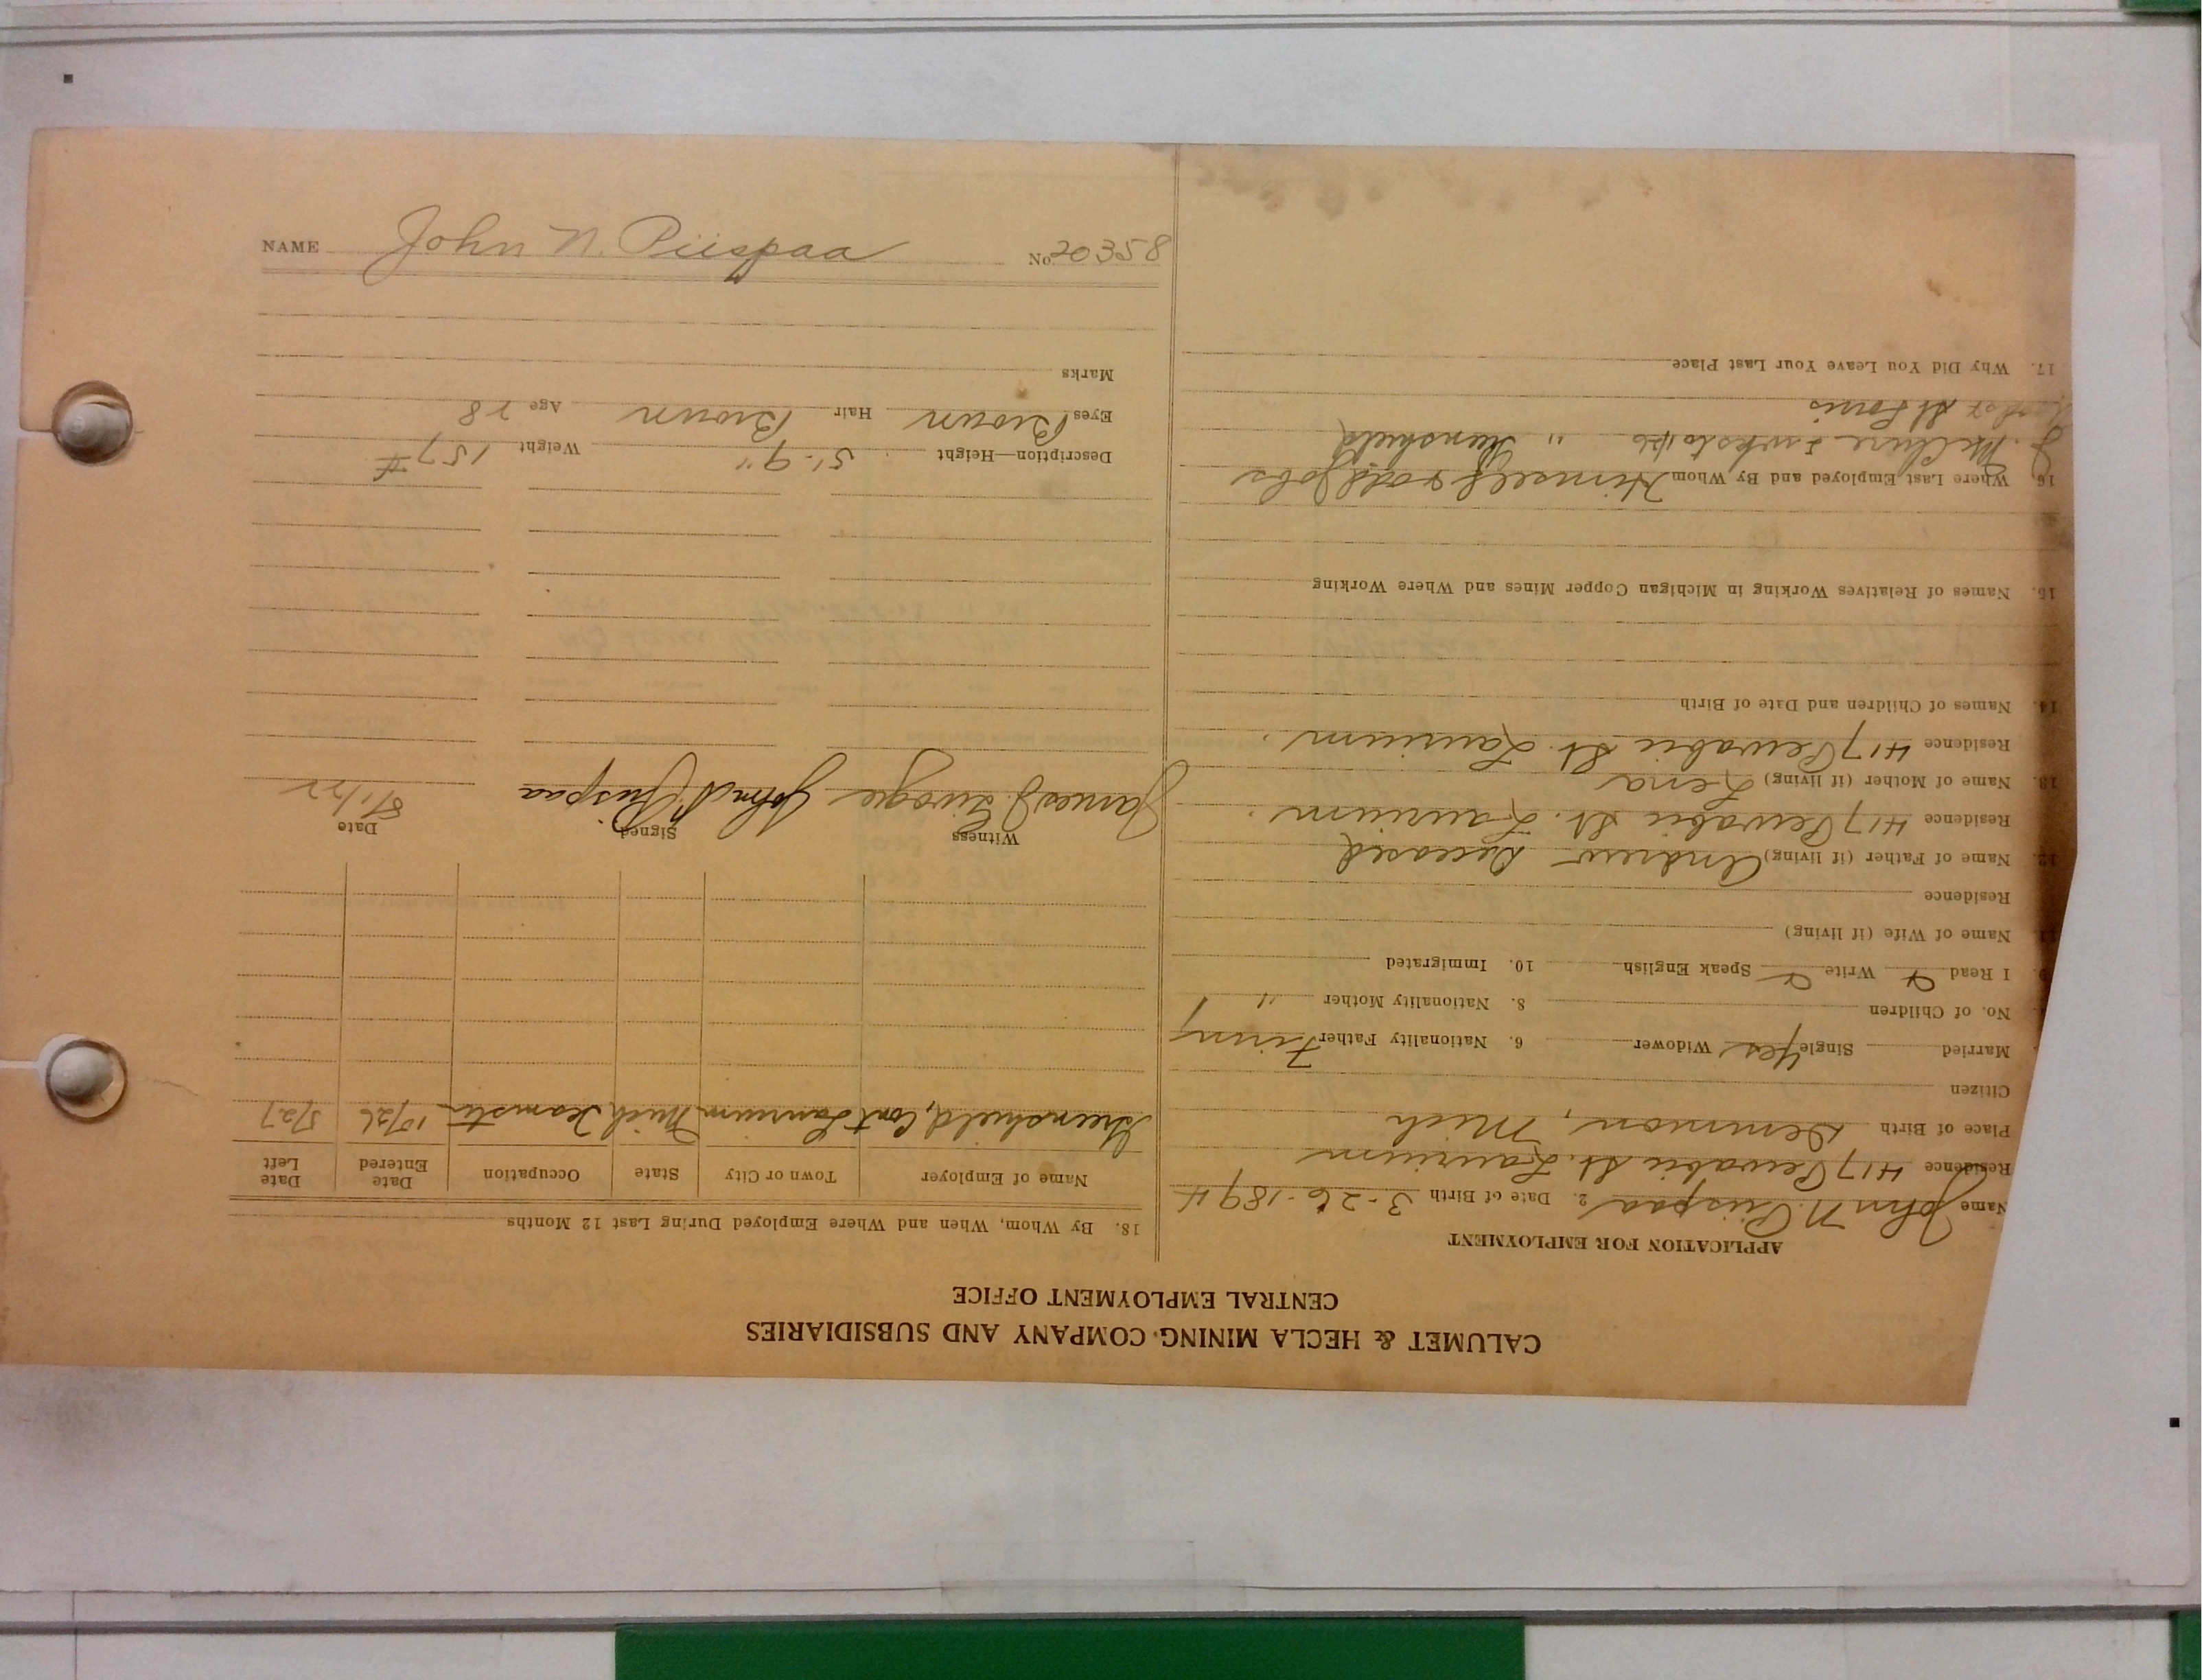 NAME John N. Piispaa No. 20358
CALUMET & HECLA MINING COMPANY AND SUBSIDIARIES
CENTRAL EMPLOYMENT OFFICE
APPLICATION FOR EMPLOYMENT
Name John N. Piispaa 2. Date of Birth 3-26-1894
Residence 417 Pewabic St. Laurium
Place of Birth Senmon, Mich
Citizen
Married Single Yes Widower 6. Nationality Father Finn
No. of Children 8. Nationality Mother "
I Read Write Speak English 10. Immigrated
11. Name of Wife (if living)
Residence
12. Name of Father (if living) Andrew Deceased
Residence 417 Pewabic St. Laurium.
13. Name of Mother (if living) Lena
Residence 417 Pewabic St. Laurium.
14. Names of Children and Date of Birth
15. Names of Relatives Working in Michigan Copper Mines and Where Working
16. Where Last Employed and By Whom Himself odd Jobs
J. McClure " Greenshield
St Louis
17. Why Did You Leave Your Last Place
18. By Whom, When and Where Employed During Last 12 Months
Name of Employer Town or City State Occupation Date Entered Date Left
Greenshield, Cont Laurium Mich Teamster 10/26 5/27
Witness Signed Date
James J John N Piispaa
Description—Height 5'-9" Weight 157 #
Eyes Brown Hair Brown Age 28
Marks